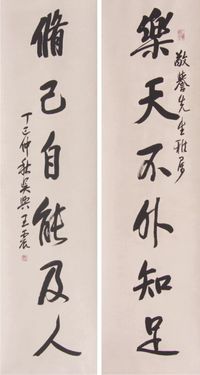 樂天不外知足
敬譽先生雅屬
脩己自能及人
丁巳仲秋吳興王震